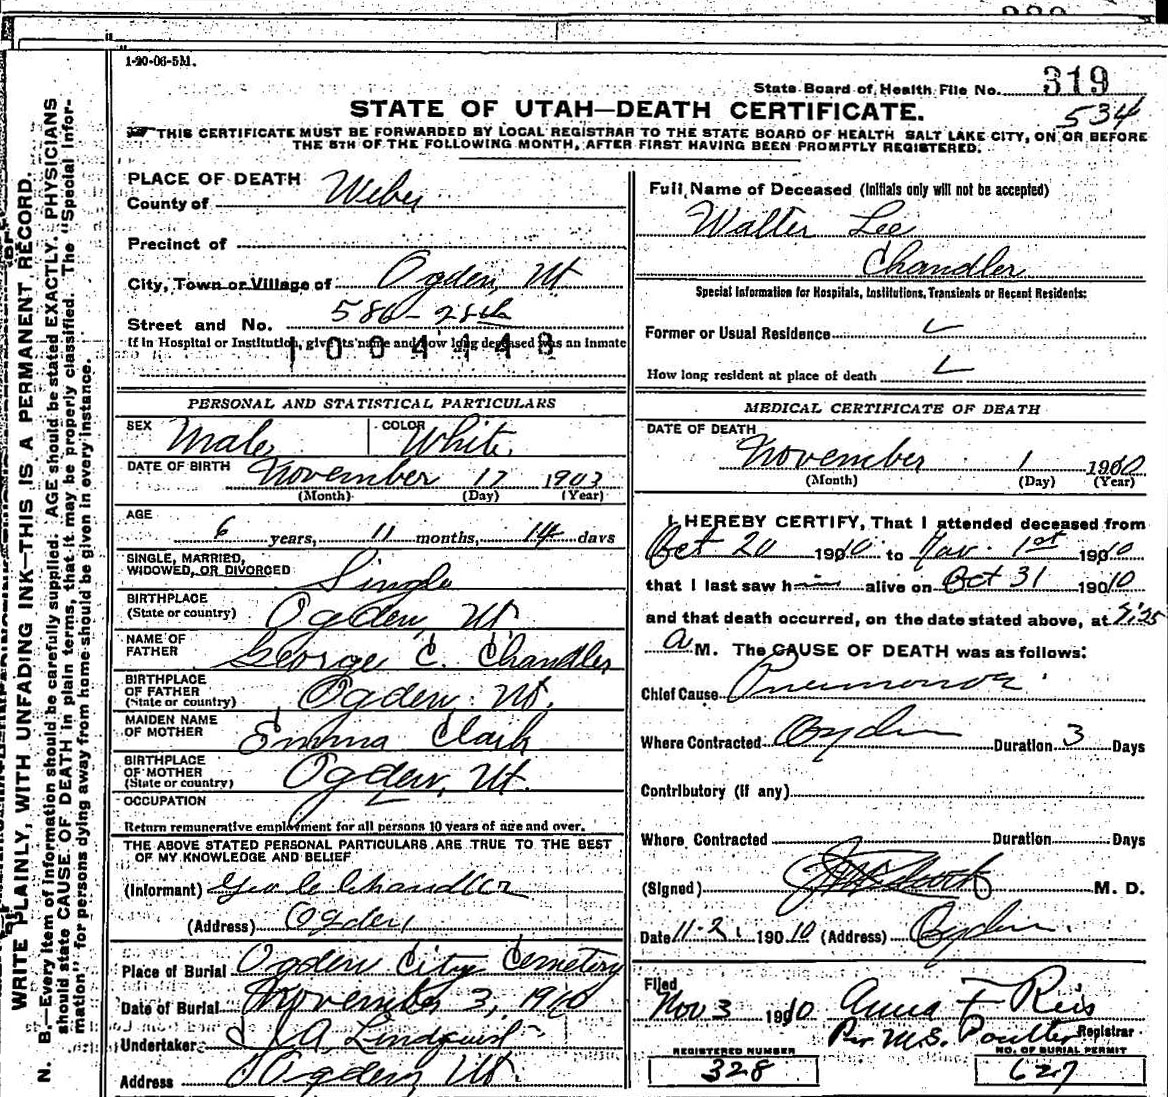 1-20-06-5M.
State Board of Health File No. 319
534
STATE OF UTAH—DEATH CERTIFICATE.
THIS CERTIFICATE MUST BE FORWARDED BY LOCAL REGISTRAR TO THE STATE BOARD OF HEALTH SALT LAKE CITY, ON OR BEFORE
THE 5TH OF THE FOLLOWING MONTH, AFTER FIRST HAVING BEEN PROMPTLY REGISTERED.
WRITE PLAINLY, WITH UNFADING INK—THIS IS A PERMANENT RECORD.
N. B.—Every item of information should be carefully supplied. AGE should be stated EXACTLY. PHYSICIANS
should state CAUSE OF DEATH in plain terms, that it may be properly classified. The "Special Infor-
mation" for persons dying away from home should be given in every instance.
PLACE OF DEATH
County of Weber
Precinct of
City, Town or Village of Ogden, Ut
Street and No. 586 - 28th
If in Hospital or Institution, give its name and how long deceased was an inmate
1004148
PERSONAL AND STATISTICAL PARTICULARS
SEX Male COLOR White
DATE OF BIRTH November 17 1903
(Month) (Day) (Year)
AGE
6 years, 11 months, 14 days
SINGLE, MARRIED,
WIDOWED, OR DIVORCED Single
BIRTHPLACE
(State or country) Ogden, Ut
NAME OF
FATHER George C. Chandler
BIRTHPLACE
OF FATHER
(State or country) Ogden, Ut.
MAIDEN NAME
OF MOTHER Emma Clark
BIRTHPLACE
OF MOTHER
(State or country) Ogden, Ut.
OCCUPATION
Return remunerative employment for all persons 10 years of age and over.
THE ABOVE STATED PERSONAL PARTICULARS ARE TRUE TO THE BEST
OF MY KNOWLEDGE AND BELIEF
(Informant) Geo C Chandler
(Address) Ogden
Place of Burial Ogden City Cemetery
Date of Burial November 3, 1910
Undertaker J. A. Lindquist
Address Ogden, Ut.
Full Name of Deceased (Initials only will not be accepted)
Walter Lee
Chandler
Special Information for Hospitals, Institutions, Transients or Recent Residents:
Former or Usual Residence
How long resident at place of death
MEDICAL CERTIFICATE OF DEATH
DATE OF DEATH
November 1 1910
(Month) (Day) (Year)
I HEREBY CERTIFY, That I attended deceased from
Oct 20 1910 to Nov. 1st 1910
that I last saw him alive on Oct 31 1910
and that death occurred, on the date stated above, at
a M. The CAUSE OF DEATH was as follows:
Chief Cause Pneumonia
Where Contracted Ogden Duration 3 Days
Contributory (if any)
Where Contracted Duration Days
(Signed) M. D.
Date 11-2. 1910 (Address) Ogden.
Filed
Nov 3 1910 Anna F Reis
Per M.S. Poulter Registrar
REGISTERED NUMBER
328
NO. OF BURIAL PERMIT
627